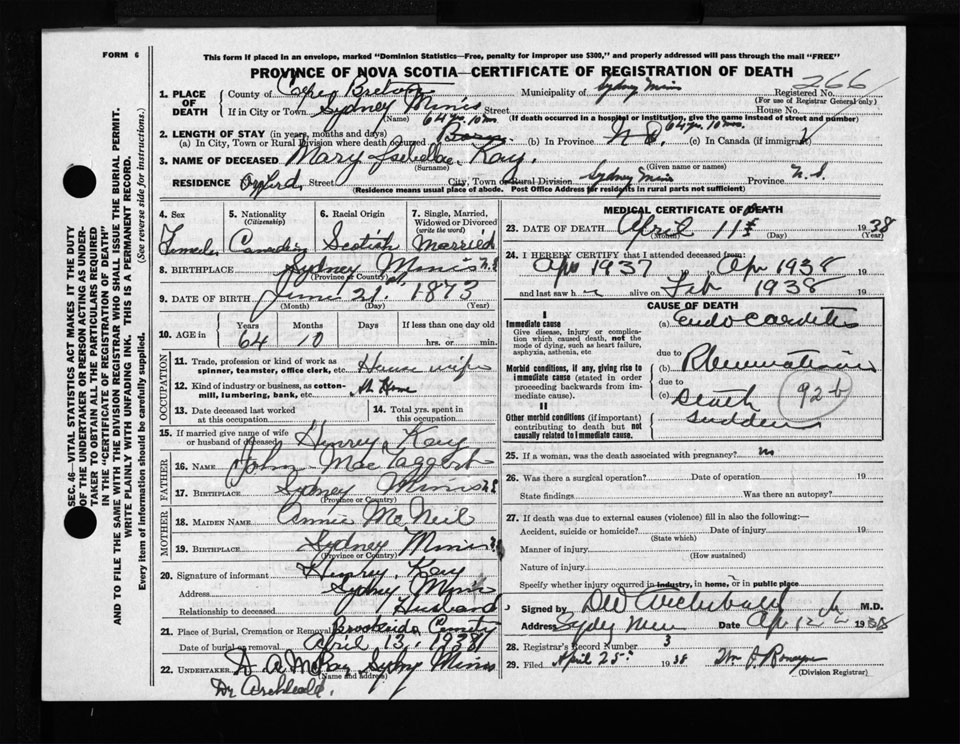 FORM 6
This form if placed in an envelope, marked "Dominion Statistics—Free, penalty for improper use $300," and properly addressed will pass through the mail "FREE"
PROVINCE OF NOVA SCOTIA—CERTIFICATE OF REGISTRATION OF DEATH
266
1. PLACE OF DEATH County of Cape Breton Municipality of Sydney Mines Registered No.
(For use of Registrar General only)
If in City or Town Sydney Mines Street House No.
(Name) (If death occurred in a hospital or institution, give the name instead of street and number)
2. LENGTH OF STAY (in years, months and days) 64 yrs. 10 mos. 64 yrs. 10 mos.
(a) In City, Town or Rural Division where death occurred Born (b) In Province N S. (c) In Canada (if immigrant)
3. NAME OF DECEASED Mary Isabellae Kay.
(Surname) (Given name or names)
RESIDENCE Oxford Street City, Town or Rural Division Sydney Mines Province N. S.
(Residence means usual place of abode. Post Office Address for residents in rural parts not sufficient)
4. Sex Female
5. Nationality (Citizenship) Canadian
6. Racial Origin Scotish
7. Single, Married, Widowed or Divorced (write the word) Married
8. BIRTHPLACE Sydney Mines N.S
(Province or Country)
9. DATE OF BIRTH June 21st 1873
(Month) (Day) (Year)
10. AGE in Years 64 Months 10 Days If less than one day hrs. or min.
OCCUPATION
11. Trade, profession or kind of work as spinner, teamster, office clerk, etc. House wife
12. Kind of industry or business, as cotton-mill, lumbering, bank, etc. At Home
13. Date deceased last worked at this occupation
14. Total yrs. spent in this occupation
15. If married give name of wife or husband of deceased Henrey Kay
FATHER
16. NAME John MacTaggert
17. BIRTHPLACE Sydney Mines N.S
(Province or Country)
MOTHER
18. MAIDEN NAME Annie McNeil
19. BIRTHPLACE Sydney Mines
(Province or Country)
20. Signature of informant Henrey. Kay
Address Sydney Mines
Relationship to deceased Husband
21. Place of Burial, Cremation or Removal Brookside Cemty
Date of burial or removal April 13, 1938
22. UNDERTAKER D A McKay Sydny Mines
(Name and address)
Dr Archbald.
MEDICAL CERTIFICATE OF DEATH
23. DATE OF DEATH April 11th 1938
(Month) (Day) (Year)
24. I HEREBY CERTIFY that I attended deceased from
Apr 1937 to Apr 1938
and last saw h alive on Feb 1938
CAUSE OF DEATH
I
Immediate cause (a) Endocarditis
Give disease, injury, or complication which caused death, not the mode of dying, such as heart failure, asphyxia, asthenia, etc
due to
Morbid conditions, if any, giving rise to immediate cause (stated in order proceeding backwards from immediate cause). (b) Rheumatism
due to
(c) Death 92b
II
Sudden
Other morbid conditions (if important) contributing to death but not causally related to immediate cause.
25. If a woman, was the death associated with pregnancy? no
26. Was there a surgical operation? Date of operation 19
State findings Was there an autopsy?
27. If death was due to external causes (violence) fill in also the following:—
Accident, suicide or homicide? Date of injury 19
(State which)
Manner of injury
(How sustained)
Nature of injury
Specify whether injury occurred in industry, in home, or in public place
Signed by DW Archibald M.D.
Address Sydney Mines Date Apr 12 1938
28. Registrar's Record Number 3
29. Filed April 25th 1938 Wm
(Division Registrar)
SEC. 46—VITAL STATISTICS ACT MAKES IT THE DUTY
OF THE UNDERTAKER OR PERSON ACTING AS UNDER-
TAKER TO OBTAIN ALL THE PARTICULARS REQUIRED
IN THE "CERTIFICATE OF REGISTRATION OF DEATH"
AND TO FILE THE SAME WITH THE DIVISION REGISTRAR WHO SHALL ISSUE THE BURIAL PERMIT.
WRITE PLAINLY WITH UNFADING INK. THIS IS A PERMANENT RECORD.
Every item of information should be carefully supplied. (See reverse side for instructions.)